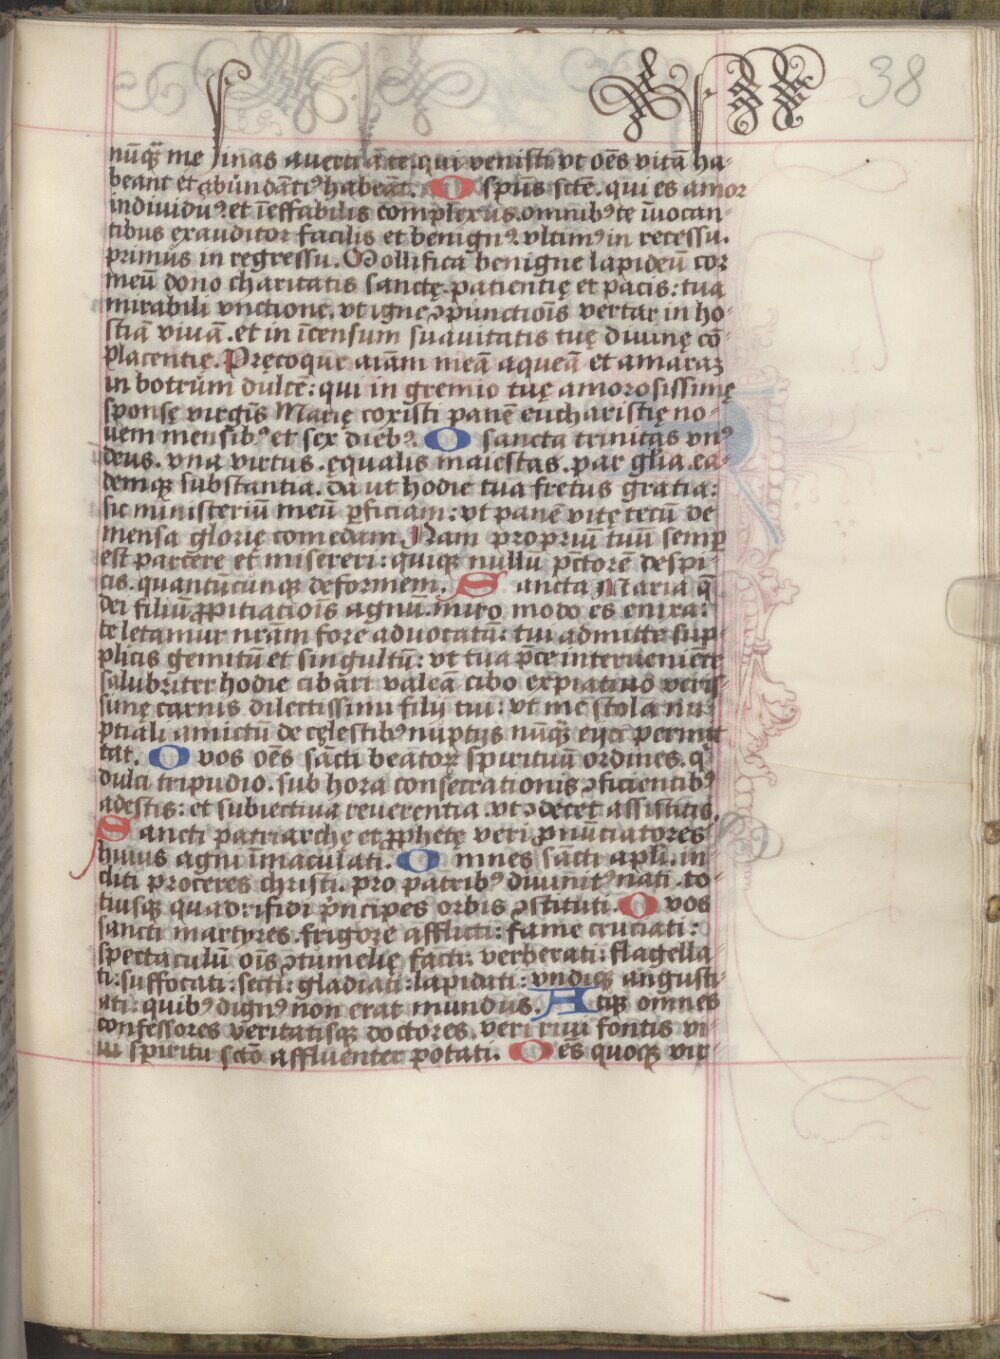 38
nūq̄ me sinas auerti a te. qui venisti vt oēs vitā ha-
beant et abūndāti⁹ habeāt. O spūs scte. qui es amor
indiuidu⁹. et īeffabilis complexus. omnib⁹ te īuocan-
tibus exauditor facilis et benign⁹. vltim⁹ in recessu.
primus in regressu. Mollifica benigne lapideū cor
meū dono charitatis sanctę. patientię et pacis: tua
mirabili vnctione. vt igne ꝯpūnctiōis vertar in ho-
stiā viuā. et in īcensum suauitatis tuę diuinę cō-
placentię. Pręcoque aīam meā aqueā et amaraꝫ
in botrum dulcē: qui in gremio tuę amorosissimę
sponsę virgīs Marię coxisti panē eucharistię no-
uem mensib⁹ et sex dieb⁹. O sancta trinitas vn⁹
deus. vna virtus. ęqualis maiestas. par glīa. ea-
demqꝫ substantia. da ut hodie tua fretus gratia:
sic ministeriū meū ꝑficiam: vt panē vitę tecū de
mensa glorię comedam. Nam propriū tuū semꝑ
est parcere et misereri: quiqꝫ nullū pc̄torē despi-
cis. quantūcunqꝫ deformem. Sancta Maria q̄
dei filiū ꝓpitiaciōis agnū. miro modo es enixa:
te letamur nr̄am fore aduocatā: tui admitte sup-
plicis gemitū et singultū: vt tua p̄ce interueniēte
salubriter hodie cibari valeā cibo expiatiuo veris-
simę carnis dilectissimi filij tui: vt me stola nu-
ptiali amictū de cęlestib⁹ nuptijs nūq̄ eijci permit
tat. O vos oēs sācti beatoꝝ spirituū ordines. q̄
dulci tripudio. sub hora consecrationis ꝯficientib⁹
adestis: et subiectiua reuerentia. vt ꝯdecet assistitis.
Sancti patriarchę et ꝓphetę veri p̄nūciatores
huius agni īmaculati. Omnes sācti apl̄i. in-
cliti proceres christi. pro patrib⁹ diuinit⁹ nati. to-
tiusqꝫ quadrifidi p̄ncipes orbis ꝯstituti. O vos
sancti martyres. frigore afflicti: fame cruciati:
spectaculū oīs ꝯtumelię facti: verberati: flagella
ti: suffocati: secti: gladiati: lapidati: vndiqꝫ angusti-
ati: quib⁹ dign⁹ non erat mundus. Atqꝫ omnes
confessores veritatisqꝫ doctores. veri riuū fontis vi
ui spiritu scto affluenter potati. Oēs quoqꝫ vir-